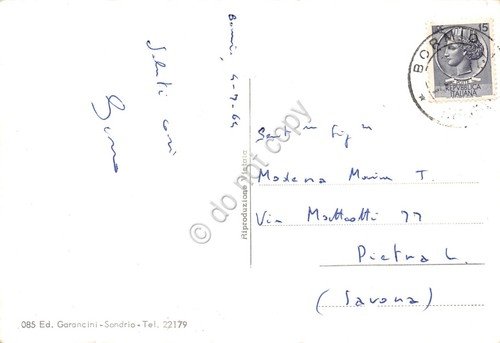 Bormio, 4-7-64
Saluti cari
15
BORMIO
REPVBBLICA
ITALIANA
Gent.ma Sig.na
Modena Maria T.
Via Matteotti 77
Pietra L.
(Savona)
Riproduzione Vietata
© do not copy
085 Ed. Garancini - Sondrio - Tel. 22179